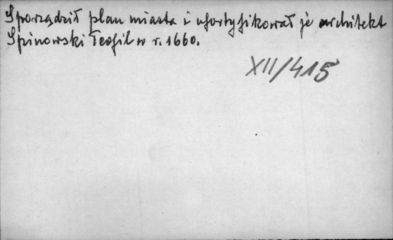 Sporządził plan miasta i ufortyfikował je architekt
Spinowski Teofil w r. 1660.
XII/415